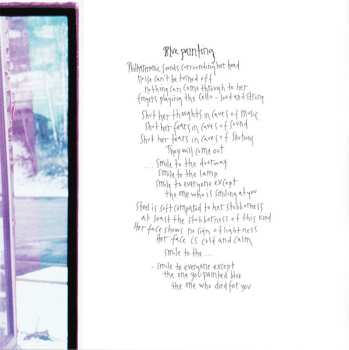 Blue painting
Philharmonic sounds surrounding her head
can't be turned off
nothing can come through to her
fingers playing the cello - loud and strong
Shut her thoughts in caves of music
Shut her fears in caves of sound
Shut her fears in caves of
They will come out
... Smile to the doorway
Smile to the lamp
Smile to everyone except
the one who is smiling at you
Steel is soft compared to her stubborness
at least the stubborness of this kind
Her face shows no sign of lightness
Her face is cold and calm
Smile to the ....
- Smile to everyone except
the one you painted blue
the one who died for you